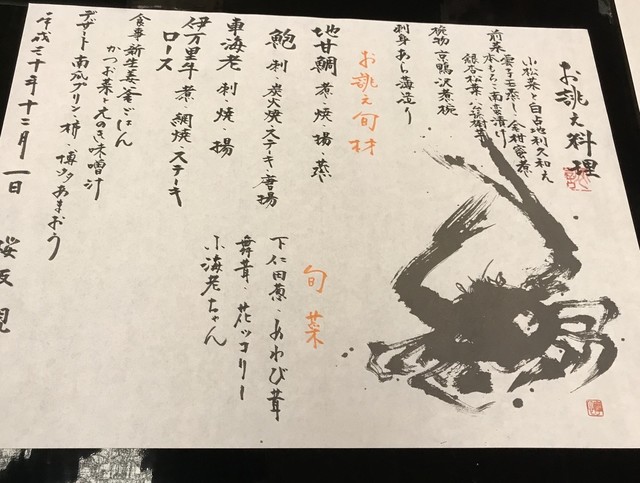 お誂え料理
小松菜と白占地利久和え
前菜 雲子玉蒸し・金柑蜜煮
本もろこ南蛮漬け
銀杏松葉・
椀物 京鴨沢煮椀
刺身 あら海造り
お誂え旬材
地甘鯛 煮・焼・揚・蒸
鮑 刺・炭火焼・ステーキ・唐揚
車海老 刺・焼・揚
伊万里牛 煮・網焼・ステーキ
ロース
旬菜
下仁田葱・あわび茸
舞茸・花ッコリー
小海老ちゃん
食事 新生姜釜ごはん
かつお菜とえのき味噌汁
デザート 南瓜プリン・柿・博多あまおう
平成三十年十二月一日 桜坂 観